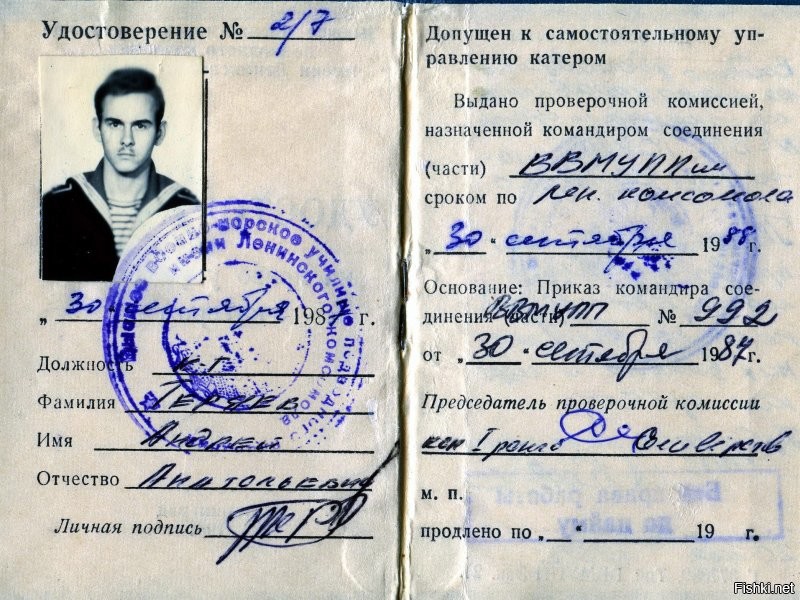 Удостоверение № 2/7
„30" сентября 198 г.
Должность к-т
Фамилия
Имя Андрей
Отчество Анатольевич
Личная подпись
Высшее военно-морское училище подводного
имени Ленинского комсомола
Допущен к самостоятельному уп-
равлению катером
Выдано проверочной комиссией,
назначенной командиром соединения
(части) ВВМУПП им
сроком по Лен. комсомола
„30" сентября 1988 г.
Основание: Приказ командира сое-
динения (части) ВВМУПП № 992
от „30" сентября 1987 г.
Председатель проверочной комиссии
кап 1 ранга
м. п.
продлено по „ " 19 г.
Без права работы
по найму
Fishki.net